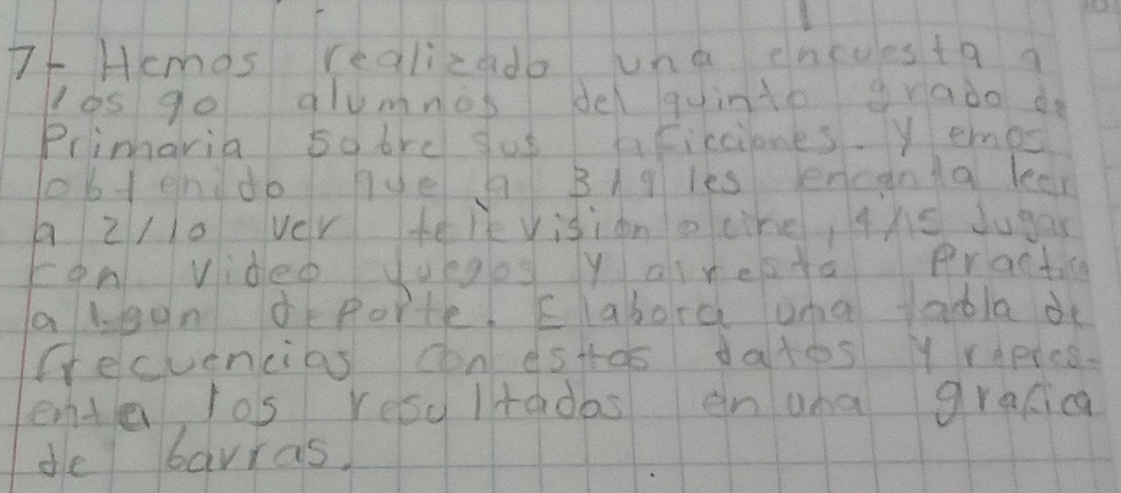 7- Hemos realizado una encuesta a
los 90 alumnos del quinto grado de
Primaria sobre sus aficciones. Y emos
obtenido que a 3/9 les encanta leer
a 2/10 ver televisión o cine, 4/15 Jugar
con video juegos y al resto Practica
algon deporte. Elabora una tabla de
frecuencias con estos datos y repres-
enta los resultados en una grafica
de barras.